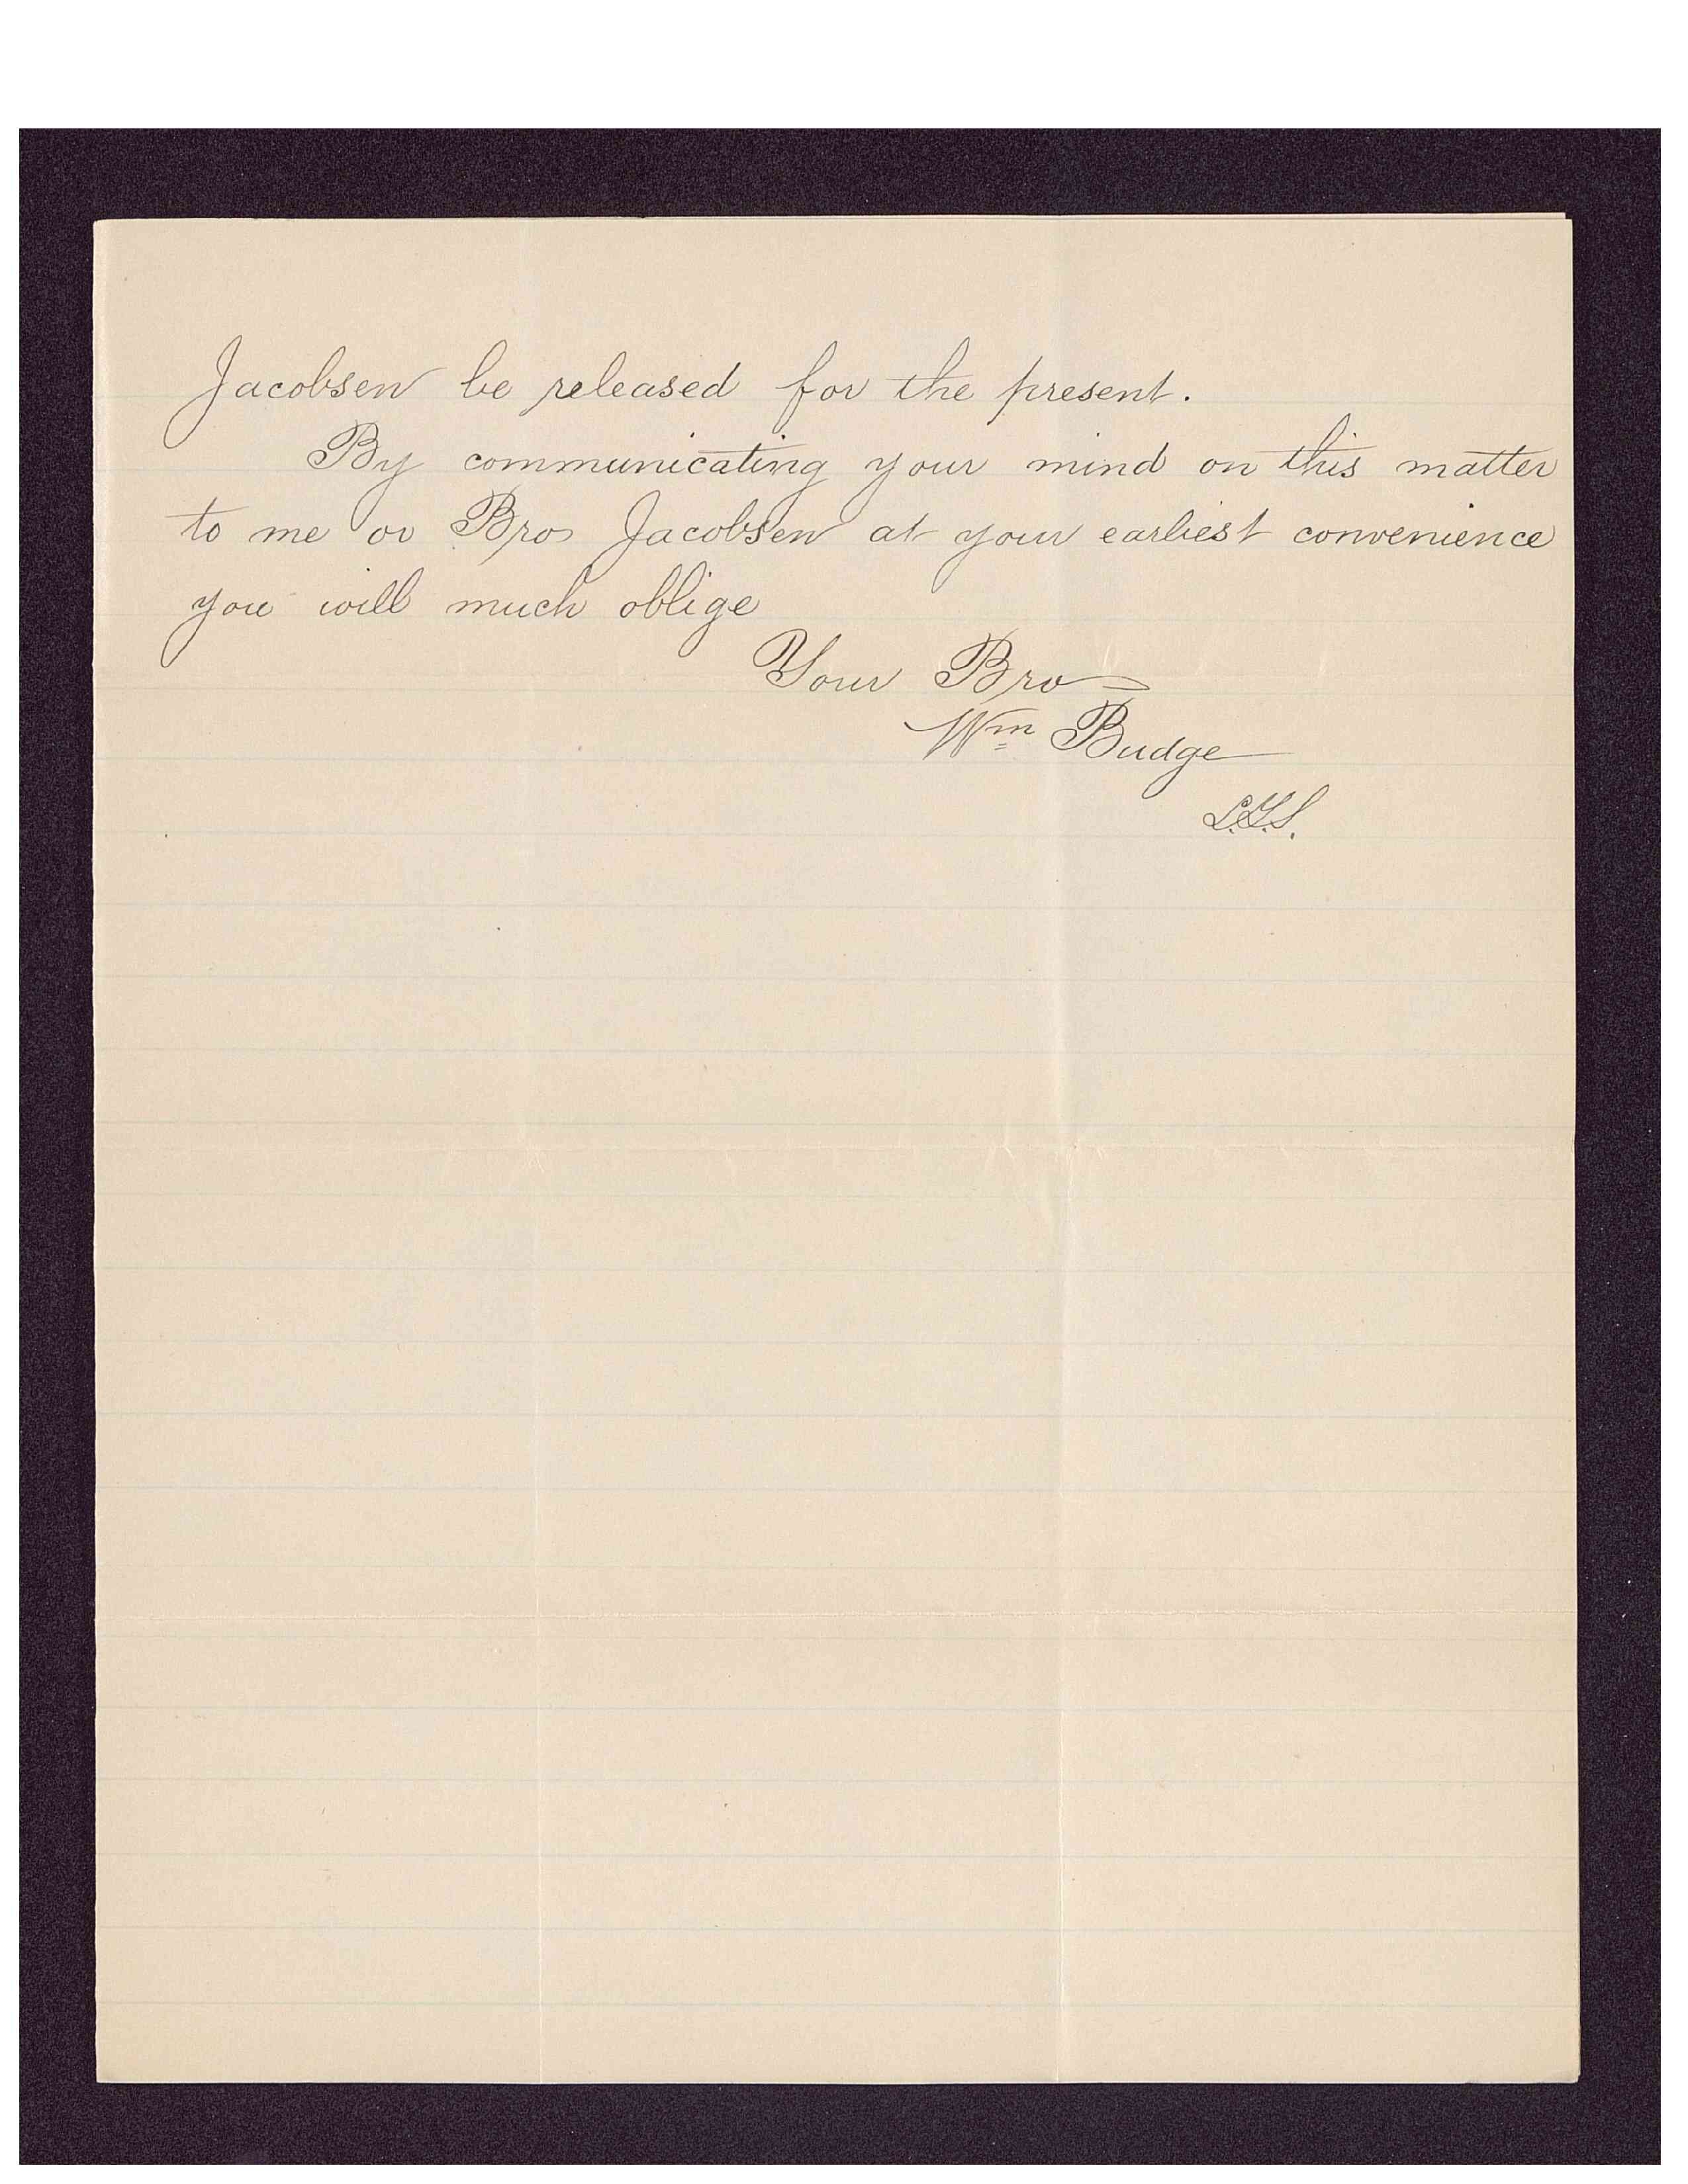 Jacobsen be released for the present.
By communicating your mind on this matter
to me or Bro Jacobsen at your earliest convenience
you will much oblige
Your Bro
Wm Budge